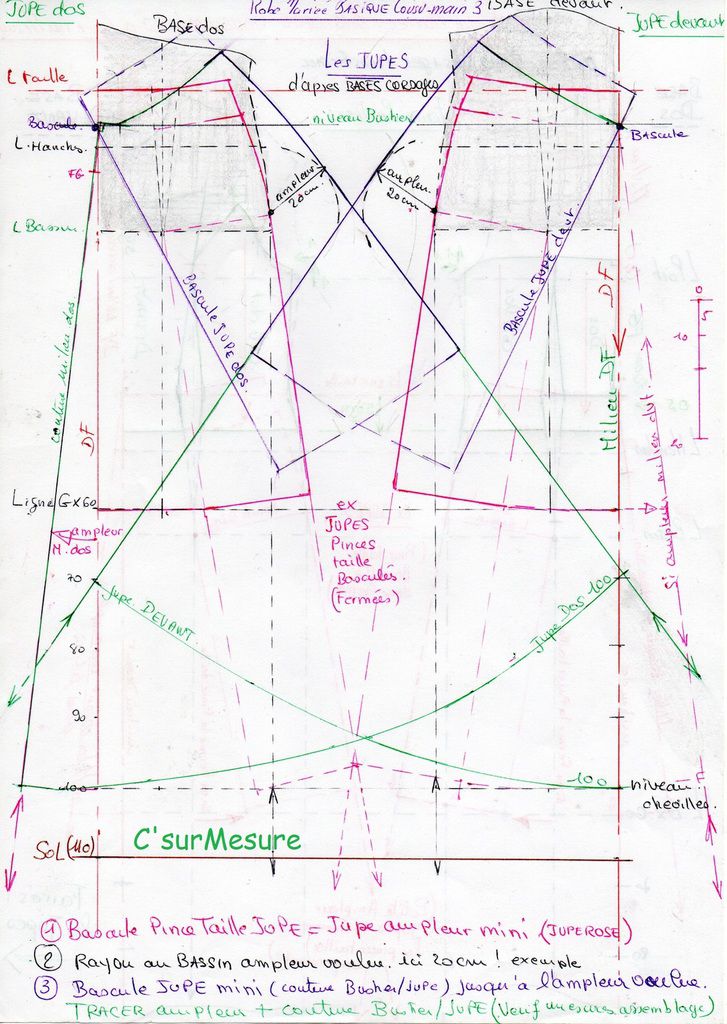 JUPE dos
Robe Mariée BASIQUE Cousu-main 3
BASE devant.
JUPE devant
BASE dos
Les JUPES
d'après BASES CORSAGES
L taille
niveau Bustier
Bascule
BASCULE
L. Hanches
FG
ampleur
20cm
ampleur
20cm
L Bassin
DF
BASCULE JUPE dos.
BASCULE JUPE devt.
couture milieu dos
Milieu DF
DF
Ligne GX60
ex
JUPES
Pinces
taille
Basculés.
(Fermées)
ampleur
M. dos
Si ampleur milieu dvt.
70
Jupe DEVANT
Jupe Dos 100
80
90
100
100
niveau
chevilles.
SOL (110)
C'surMesure
① Bascule Pince Taille JUPE = Jupe ampleur mini (JUPE ROSE)
② Rayon au BASSIN ampleur voulue. ici 20cm ! exemple
③ Bascule JUPE mini (couture Bustier/jupe) jusqu'à l'ampleur voulue.
TRACER ampleur + couture Bustier/JUPE (Vérif mesures assemblage)